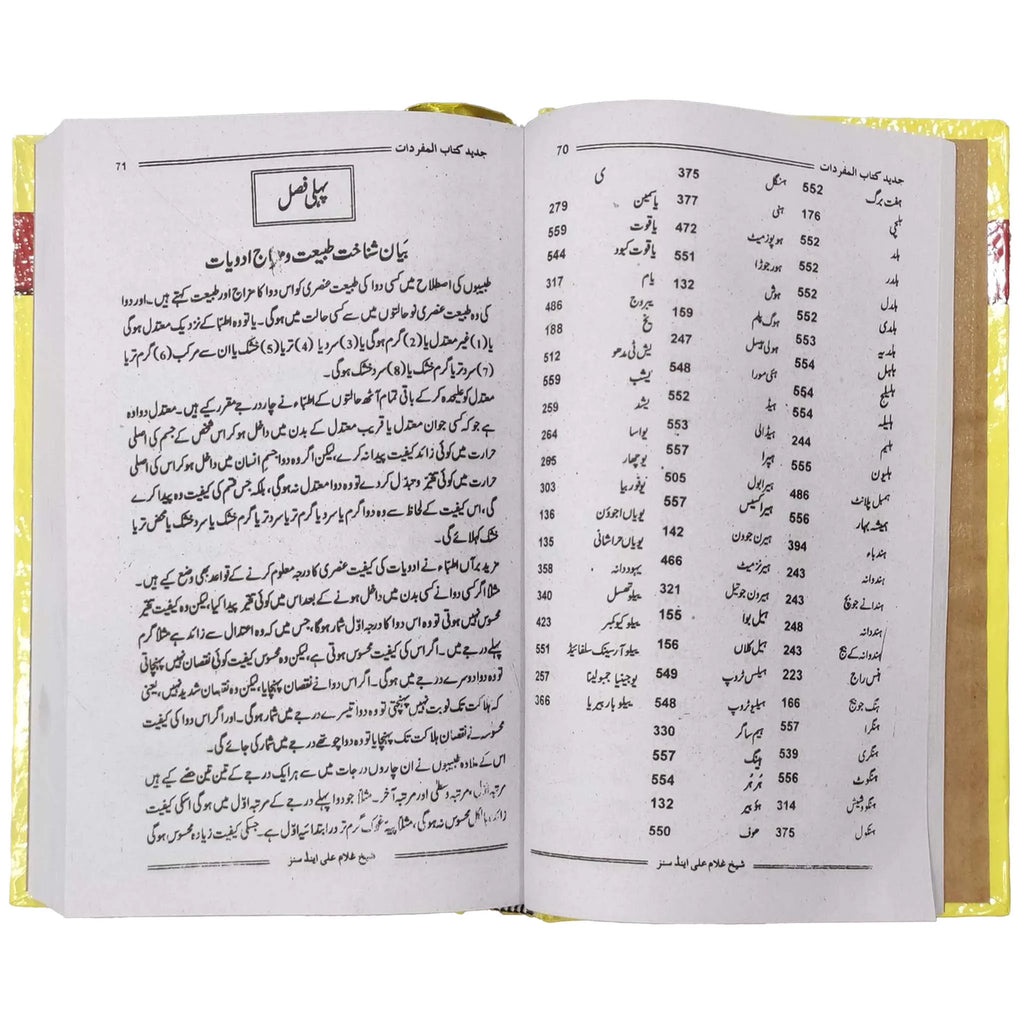 70 جدید کتاب المفردات
ہفت برگ 552 ہنگل 375 ی
ہلچی 176 ہنی 377 یاسمین 279
ہلد 552 ہوپوزمیٹ 472 یاقوت 559
ہلدر 552 ہورجوڑا 551 یاقوت کبود 544
ہلدل 552 ہوش 132 یام 317
ہلدی 552 ہوگ پلم 159 یبروج 486
ہلدیہ 553 ہولی بیسل 247 یخ 188
ہلہل 554 ہئی مورا 548 یش ٹی مدھو 512
ہلیلج 554 ہیڈ 552 یشب 559
ہلیلہ 554 ہیڈالی 553 یشد 259
ہلیم 244 ہیرا 557 یواسا 264
ہلیون 555 ہیرابول 505 یوچھار 285
ہمیل پلانٹ 486 ہیراکسیس 557 یوفوربیا 303
ہمیشہ بہار 556 ہیرن جودن 142 یویاں اجوؤن 136
ہندباء 394 ہیرنزمیٹ 466 یویاں حراشانی 135
ہندوانہ 243 ہیرون جوتیل 321 یہوددانہ 358
ہندانے جو بیج 243 ہیل بوا 155 ییلوتھسل 340
ہندوانہ 248 ہیل کلاں 156 ییلو کیوکمبر 423
ہندوانہ کے بیج 243 ہیلس ٹروپ 549 ییلو آرسینک سلفائیڈ 551
ہنس راج 223 ہیلیوٹروپ 548 یوجینیا جمبولینا 257
ہنگ جو بیج 166 ہیم ساگر 330 ییلو باربیریا 366
ہنگرا 557 ہینگ 557
ہنگری 539 ہُرہُر 554
ہنگوٹ 556 ہوبیر 132
ہنگو دشیش 314 ہوف 550
ہنگول 375
شیخ غلام علی اینڈ سنز
71 جدید کتاب المفردات
پہلی فصل
بیان شناخت طبیعت و مزاج ادویات
طبیبوں کی اصطلاح میں کسی دوا کی طبیعت عنصری کو اس دوا کا مزاج اور طبیعت کہتے ہیں۔ اور دوا
کی وہ طبیعت عنصری نو حالتوں میں سے کسی حالت میں ہوگی۔ یا تو وہ اطبّا کے نزدیک معتدل ہوگی
یا (1) غیر معتدل یا (2) گرم ہوگی یا (3) سرد یا (4) تر یا (5) خشک یا ان سے مرکب (6) گرم تر یا
(7) سرد تر یا گرم خشک یا (8) سرد خشک ہوگی۔
معتدل کو علیحدہ کر کے باقی تمام آٹھ حالتوں کے اطبّاء نے چار درجے مقرر کیے ہیں۔ معتدل دوا وہ
ہے جو کہ کسی جوان معتدل یا قریب معتدل کے بدن میں داخل ہو کر اس شخص کے جسم کی اصلی
حرارت میں کوئی زائد کیفیت پیدا نہ کرے، لیکن اگر وہ دوا جسم انسان میں داخل ہو کر اس کی اصلی
حرارت میں کوئی تغیر و تبدل کر دے تو وہ دوا معتدل نہ ہوگی، بلکہ جس قسم کی کیفیت وہ پیدا کرے
گی، اس کیفیت کے لحاظ سے وہ دوا گرم یا سرد یا گرم تر یا سرد تر یا گرم خشک یا سرد خشک یا محض تر یا
خشک کہلائے گی۔
مزید برآں اطبّاء نے ادویات کی کیفیت عنصری کا درجہ معلوم کرنے کے قواعد بھی وضع کیے ہیں۔
مثلاً اگر کسی دوا نے کسی بدن میں داخل ہونے کے بعد اس میں کوئی تغیر پیدا کیا، لیکن وہ کیفیت تغیر
محسوس نہیں ہوتی تو وہ اس دوا کا درجہ اوّل شمار ہوگا، جس میں کہ وہ اعتدال سے زائد ہے مثلاً گرم
پہلے درجے میں۔ اگر اس کی کیفیت محسوس ہوتی ہے، لیکن وہ محسوس کیفیت کوئی نقصان نہیں پہنچاتی
تو وہ دوا دوسرے درجے میں ہوگی۔ اگر اس دوا نے نقصان پہنچایا، لیکن وہ نقصان شدید نہیں، یعنی
کہ ہلاکت تک نوبت نہیں پہنچتی تو وہ دوا تیسرے درجے میں شمار ہوگی۔ اور اگر اس دوا کی کیفیت
محسوسہ نے نقصان ہلاکت تک پہنچایا تو وہ دوا چوتھے درجے میں شمار کی جائے گی۔
اس کے علاوہ طبیبوں نے ان چاروں درجات میں سے ہر ایک درجے کے تین تین حصّے کیے ہیں
مرتبہ اوّل، مرتبہ وسطی اور مرتبہ آخر۔ مثلاً جو دوا پہلے درجے کے مرتبہ اوّل میں ہوگی اسکی کیفیت
زائدہ بالکل محسوس نہ ہوگی، مثلاً گرم تر در ابتدائی اوّل ہے۔ جسکی کیفیت زیادہ محسوس ہوگی
شیخ غلام علی اینڈ سنز